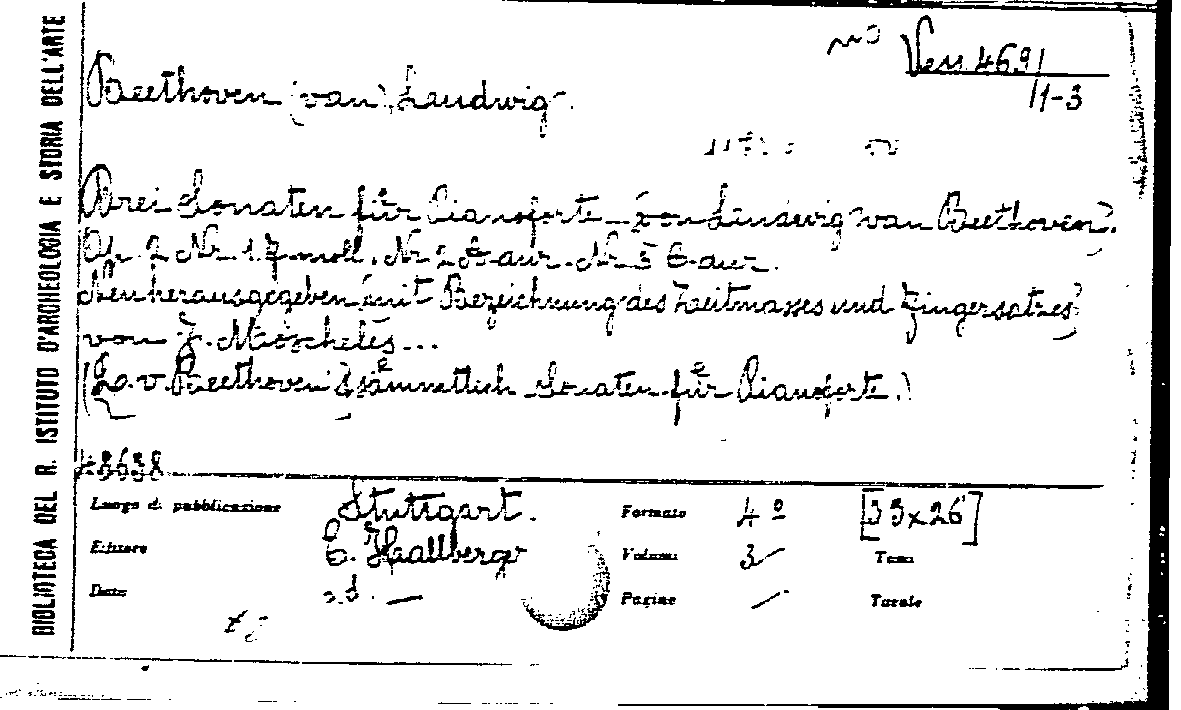 BIBLIOTECA DEL R. ISTITUTO D'ARCHEOLOGIA E STORIA DELL'ARTE
Ven 469/
/1-3
Beethoven (van) Ludwig.
Drei Sonaten für Pianoforte von Ludwig van Beethoven.
Op. 2 Nr. 1 F moll. Nr 2 A dur. Nr. 3 C dur.
Neu herausgegeben (mit Bezeichnung des Zeitmasses und Fingersatzes)
von J. Moscheles...
(L. v. Beethoven's sämmtlich Sonaten für Pianoforte.)
48638
Luogo di pubblicazione Stuttgart. Formato 4º [33x26]
Editore E. Haallberger Volumi 3 Tomi
Data s.d. — Pagine / Totale